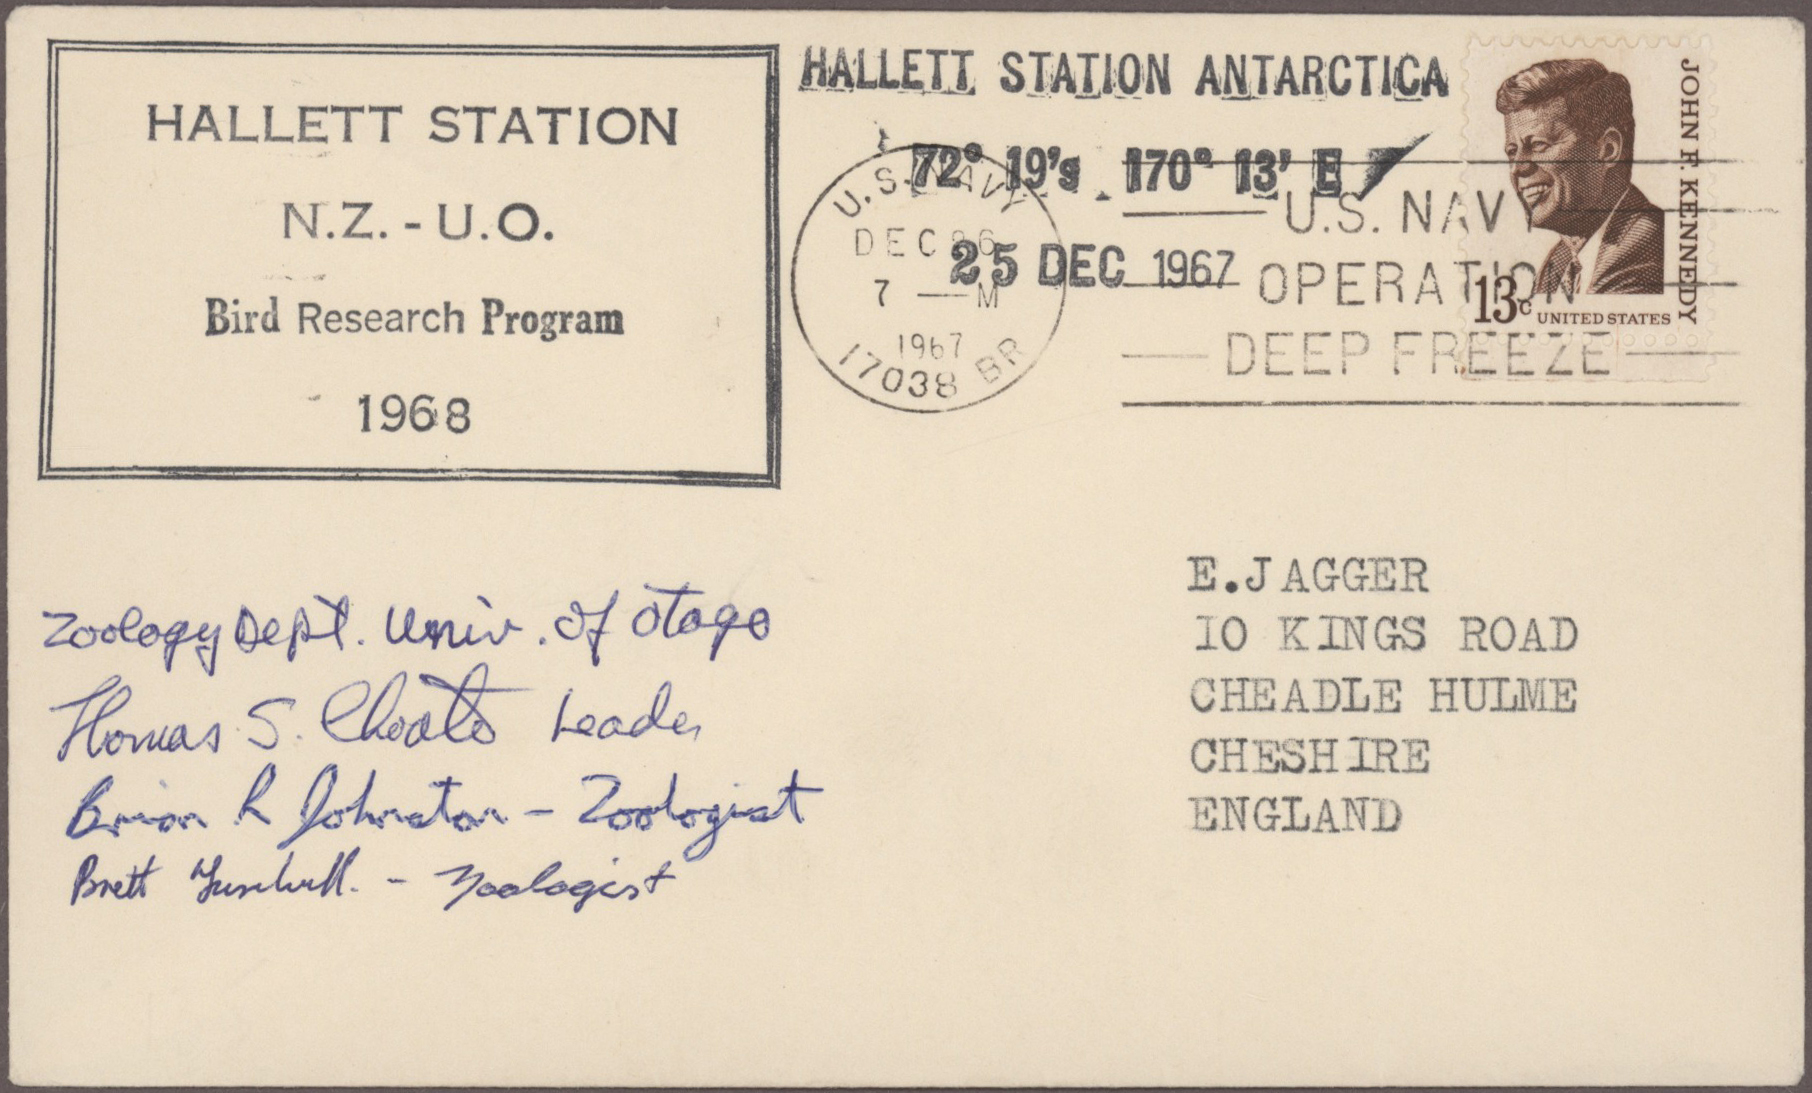 HALLETT STATION
N.Z. - U.O.
Bird Research Program
1968
HALLETT STATION ANTARCTICA
72° 19's 170° 13' E
25 DEC 1967
U.S. NAVY
DEC 26
7 — M
1967
17038 BR
U.S. NAVY
OPERATION
DEEP FREEZE
JOHN F. KENNEDY
13c UNITED STATES
Zoology Dept. Univ. of Otago
Thomas S. Choate Leader
Brian R Johnston - Zoologist
Brett - Zoologist
E.JAGGER
10 KINGS ROAD
CHEADLE HULME
CHESHIRE
ENGLAND